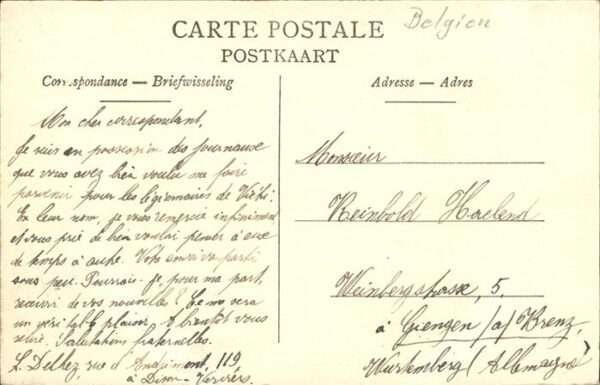 CARTE POSTALE
POSTKAART
Belgien
Correspondance — Briefwisseling
Adresse — Adres
Mon cher correspondant,
Je suis en possession des journaux
que vous avez bien voulu me faire
parvenir pour les légionnaires de
En leur nom, je vous remercie infiniment
et vous prie de bien vouloir penser à eux
de temps à autre. Votre
sous peu. Pourrais-je, pour ma part,
recevoir de vos nouvelles? Ce me sera
un véritable plaisir. A bientôt vous
relire. Salutations fraternelles.
L. Delhez, rue d'Andrimont, 119,
à Dison-Verviers.
Monsieur
Reinbold
Weinbergstrasse, 5,
à Giengen /a/ Brenz,
Wurtemberg (Allemagne)